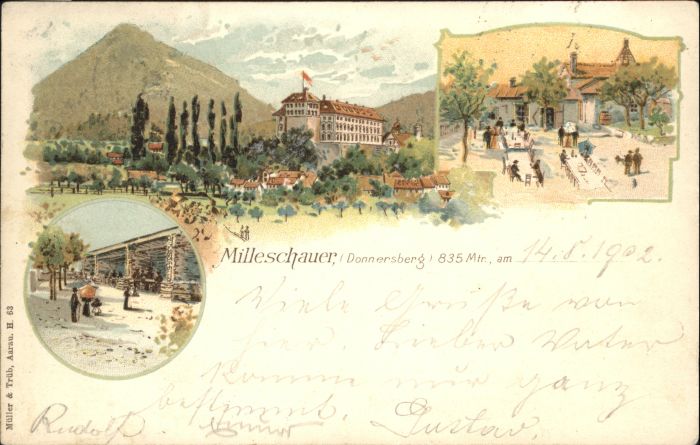 Milleschauer, (Donnersberg) 835 Mtr., am 14.8.1902.
Viele Grüße von
hier. Lieber Vater
komme nur ganz
bestimmt. Gustav.
Rudolf.
Müller & Trüb, Aarau. H. 63